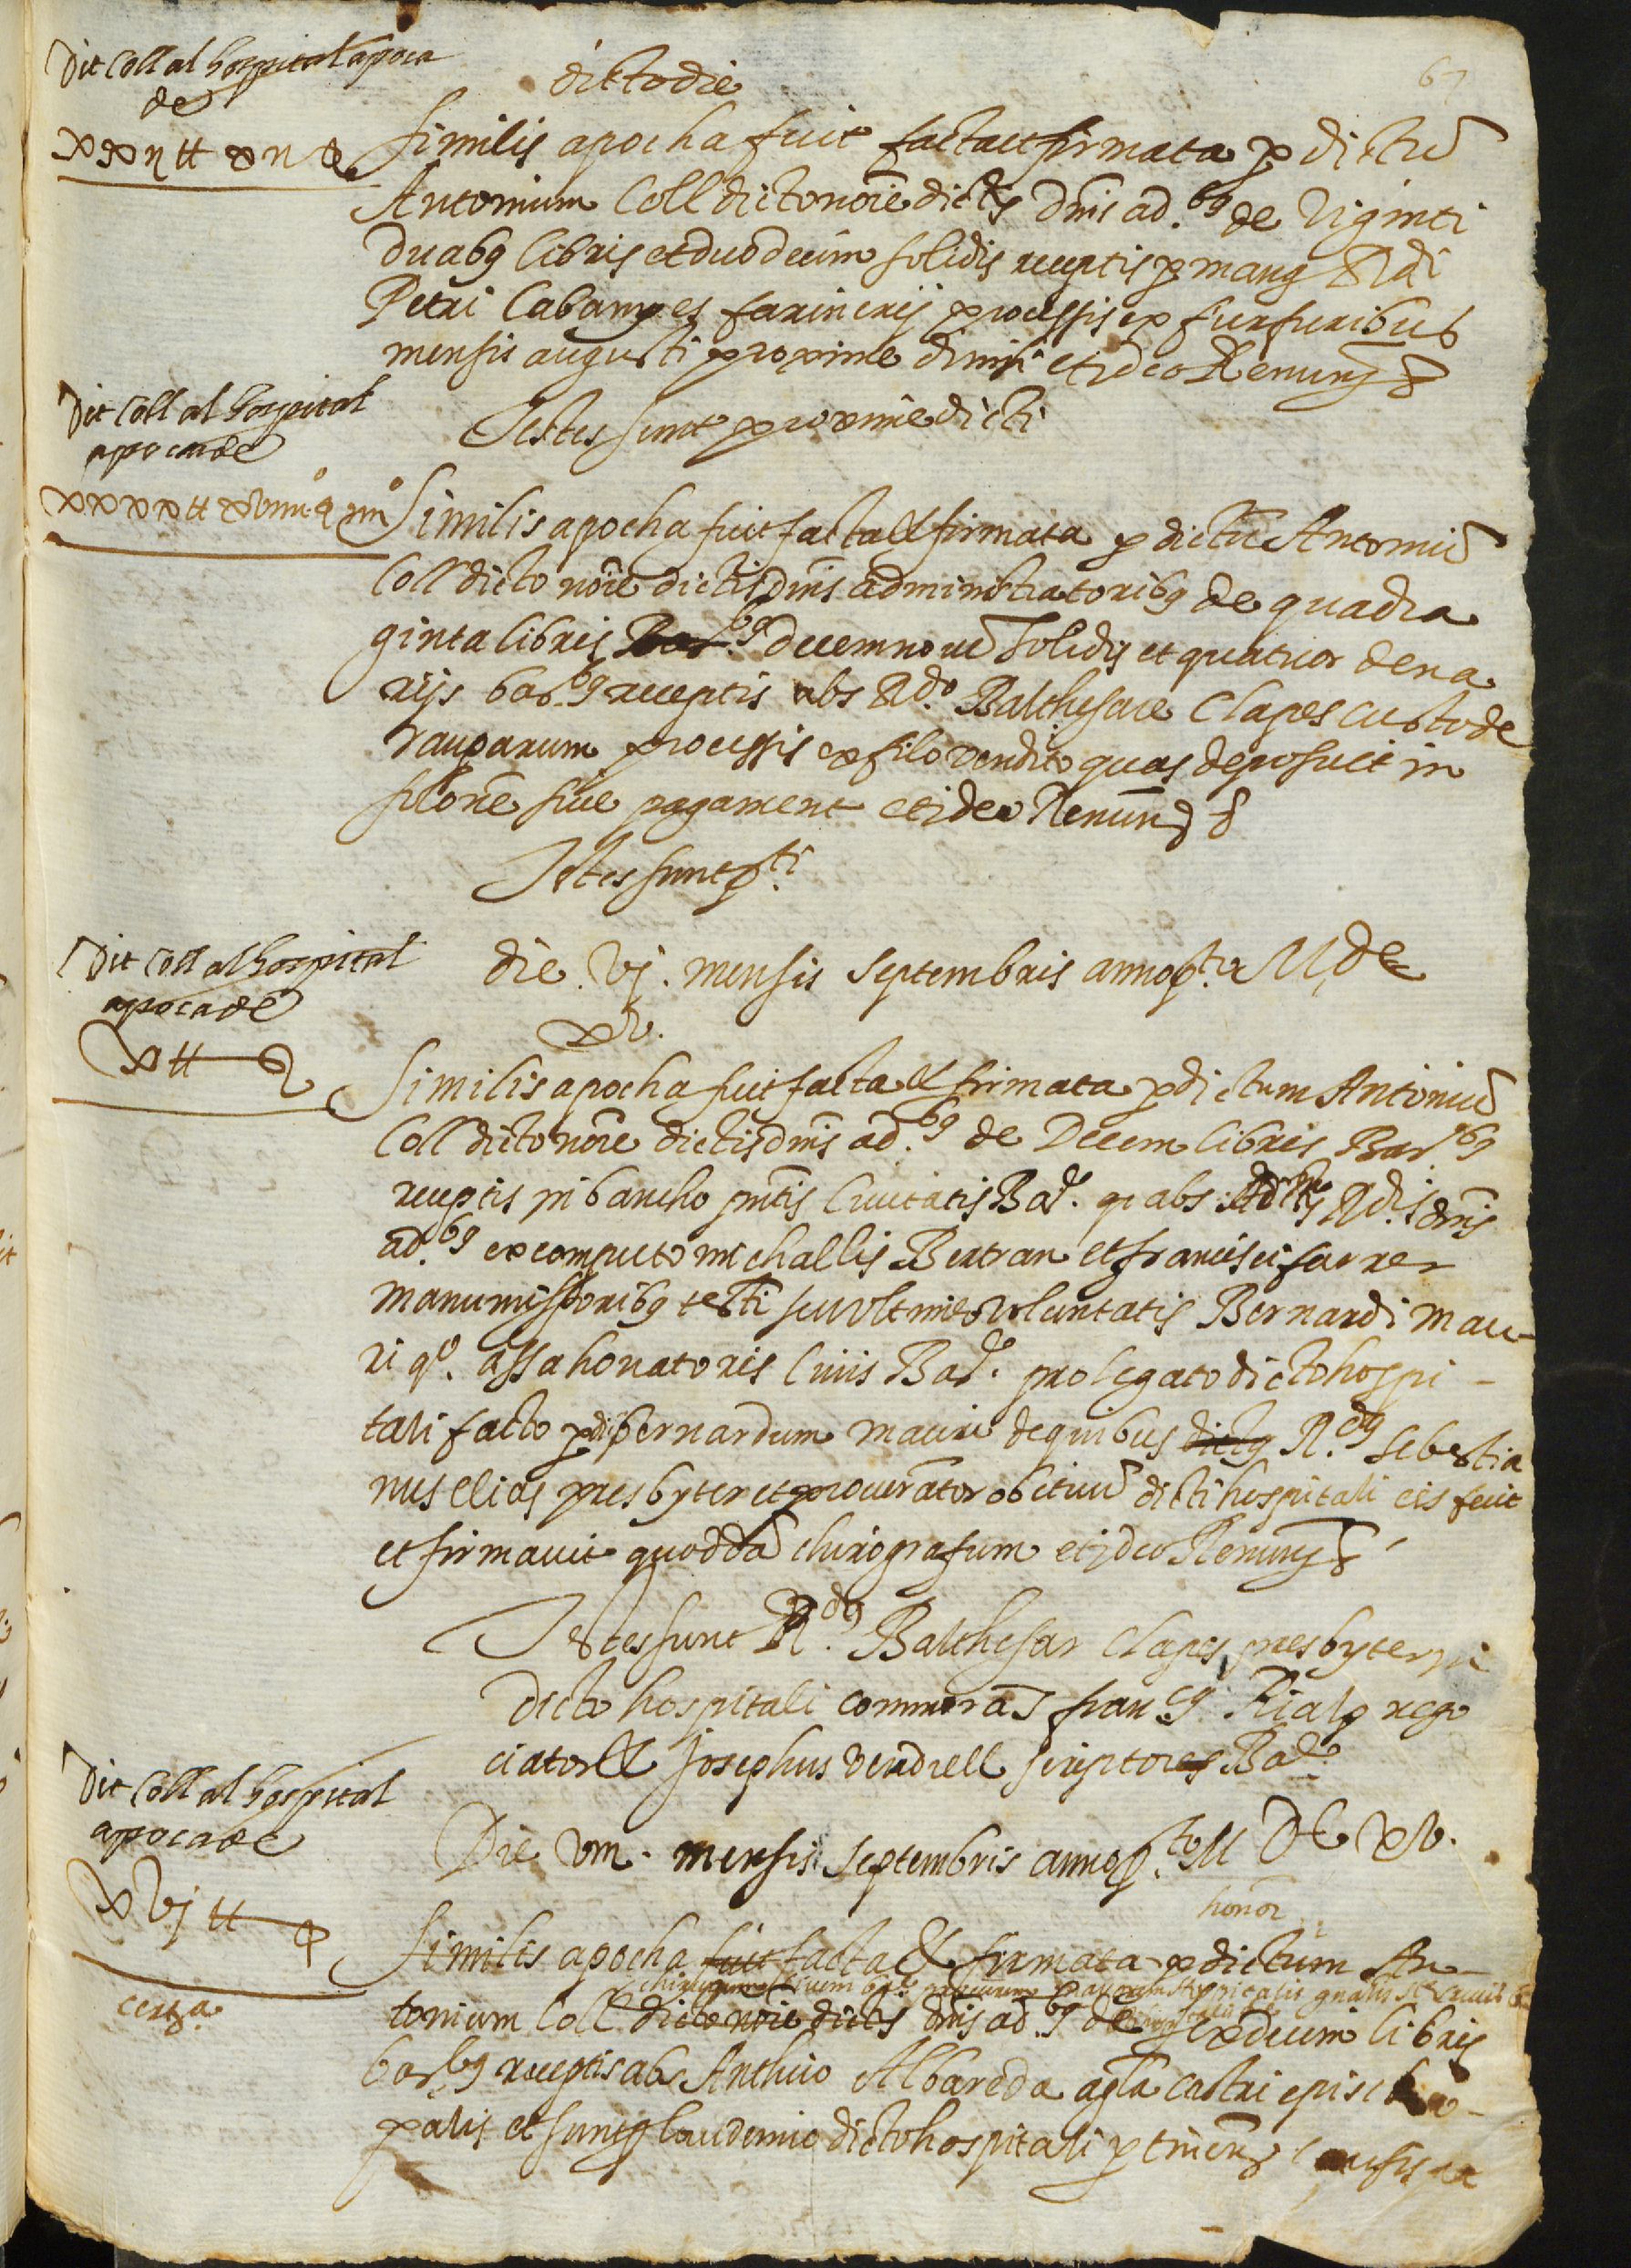 67
Dit Coll al hospital apoca
de
xxij ℔ xij ß
dicto die
Similis apocha fuit facta et firmata p dictū
Antonium Coll dicto noīe dictis dnīs ad.bꝯ de Viginti
duabꝯ libris et duodecim solidis receptis p manꝯ Rdi
Petri Cabanyes farinerij processis ex furfuribus
mensis augusti proxime et ideo Renunꝯ &
Testes sunt proxime dicti
Dit Coll al hospital
apoca de
xxxx ℔ xviiij ß iiij
Similis apocha fuit facta & firmata p dictū Antoniū
Coll dicto noīe dictis dnīs administratoribꝯ de quadra
ginta libris Bar.bꝯ decemnovē solidis et quatuor dena
rijs bar.bꝯ receptis abs Rdo. Balthesare Clapes custode
rauparum processis ex filo vendito quas deposuit in
filone sive pagament et ideo Renunꝯ &
Testes sunt p.ti
Dit Coll al hospital
apoca de
x ℔
die. vj. mensis septembris anno p.to M. dc
xv.
Similis apocha fuit facta & firmata p dictum Antoniū
Coll dicto noīe dictis dnīs ad.bꝯ de Decem libris Bar.bꝯ
receptis in bancho pn̄tis Civitatis Bar. p abs Rdis dnīs
ad.bꝯ ex computo michallis Bertran et francisci farrer
manumissoribꝯ testi seu ultime voluntatis Bernardi mau-
ri qo. assahonatoris civis Bar. pro legato dicto hospi-
tali facto p dī bernardum mauri de quibus dictꝯ R.dꝯ sebastia
nus elias presbyter et procurator obituū dicti hospitali eis fecit
et firmavit quoddā chirografum et ideo Renunꝯ &
Testes sunt R.dꝯ Balthesar Clapes presbyter in
dicto hospitali commorās fran.cꝯ Rialp nego
ciator & Josephus vendrell scriptores Bar.
Dit Coll al hospital
apoca de
xvj ℔
certa
Die viii. mensis septembris anno p.to M DC xv.
honor
Similis apocha fuit facta & firmata p dictum An-
tonium Coll dicto noīe dictis dnīs ad.bꝯ de sexdecim libris
bar.bꝯ receptis abs Anthico Albareda agla castri episco-
palis et sunt p laudemio dicto hospitali p tinenꝯ